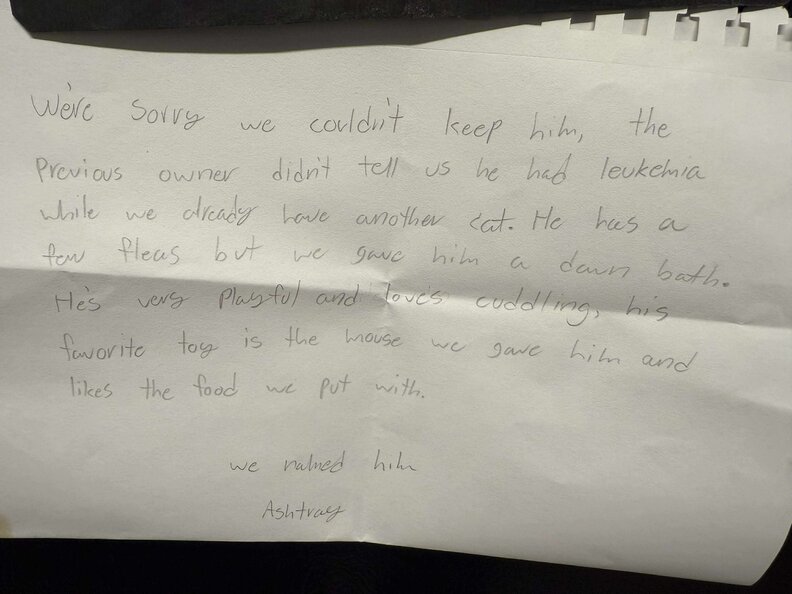 We're sorry we couldn't keep him, the
previous owner didn't tell us he had leukemia
while we already have another cat. He has a
few fleas but we gave him a dawn bath.
He's very playful and love's cuddling, his
favorite toy is the mouse we gave him and
likes the food we put with.
we named him
Ashtray